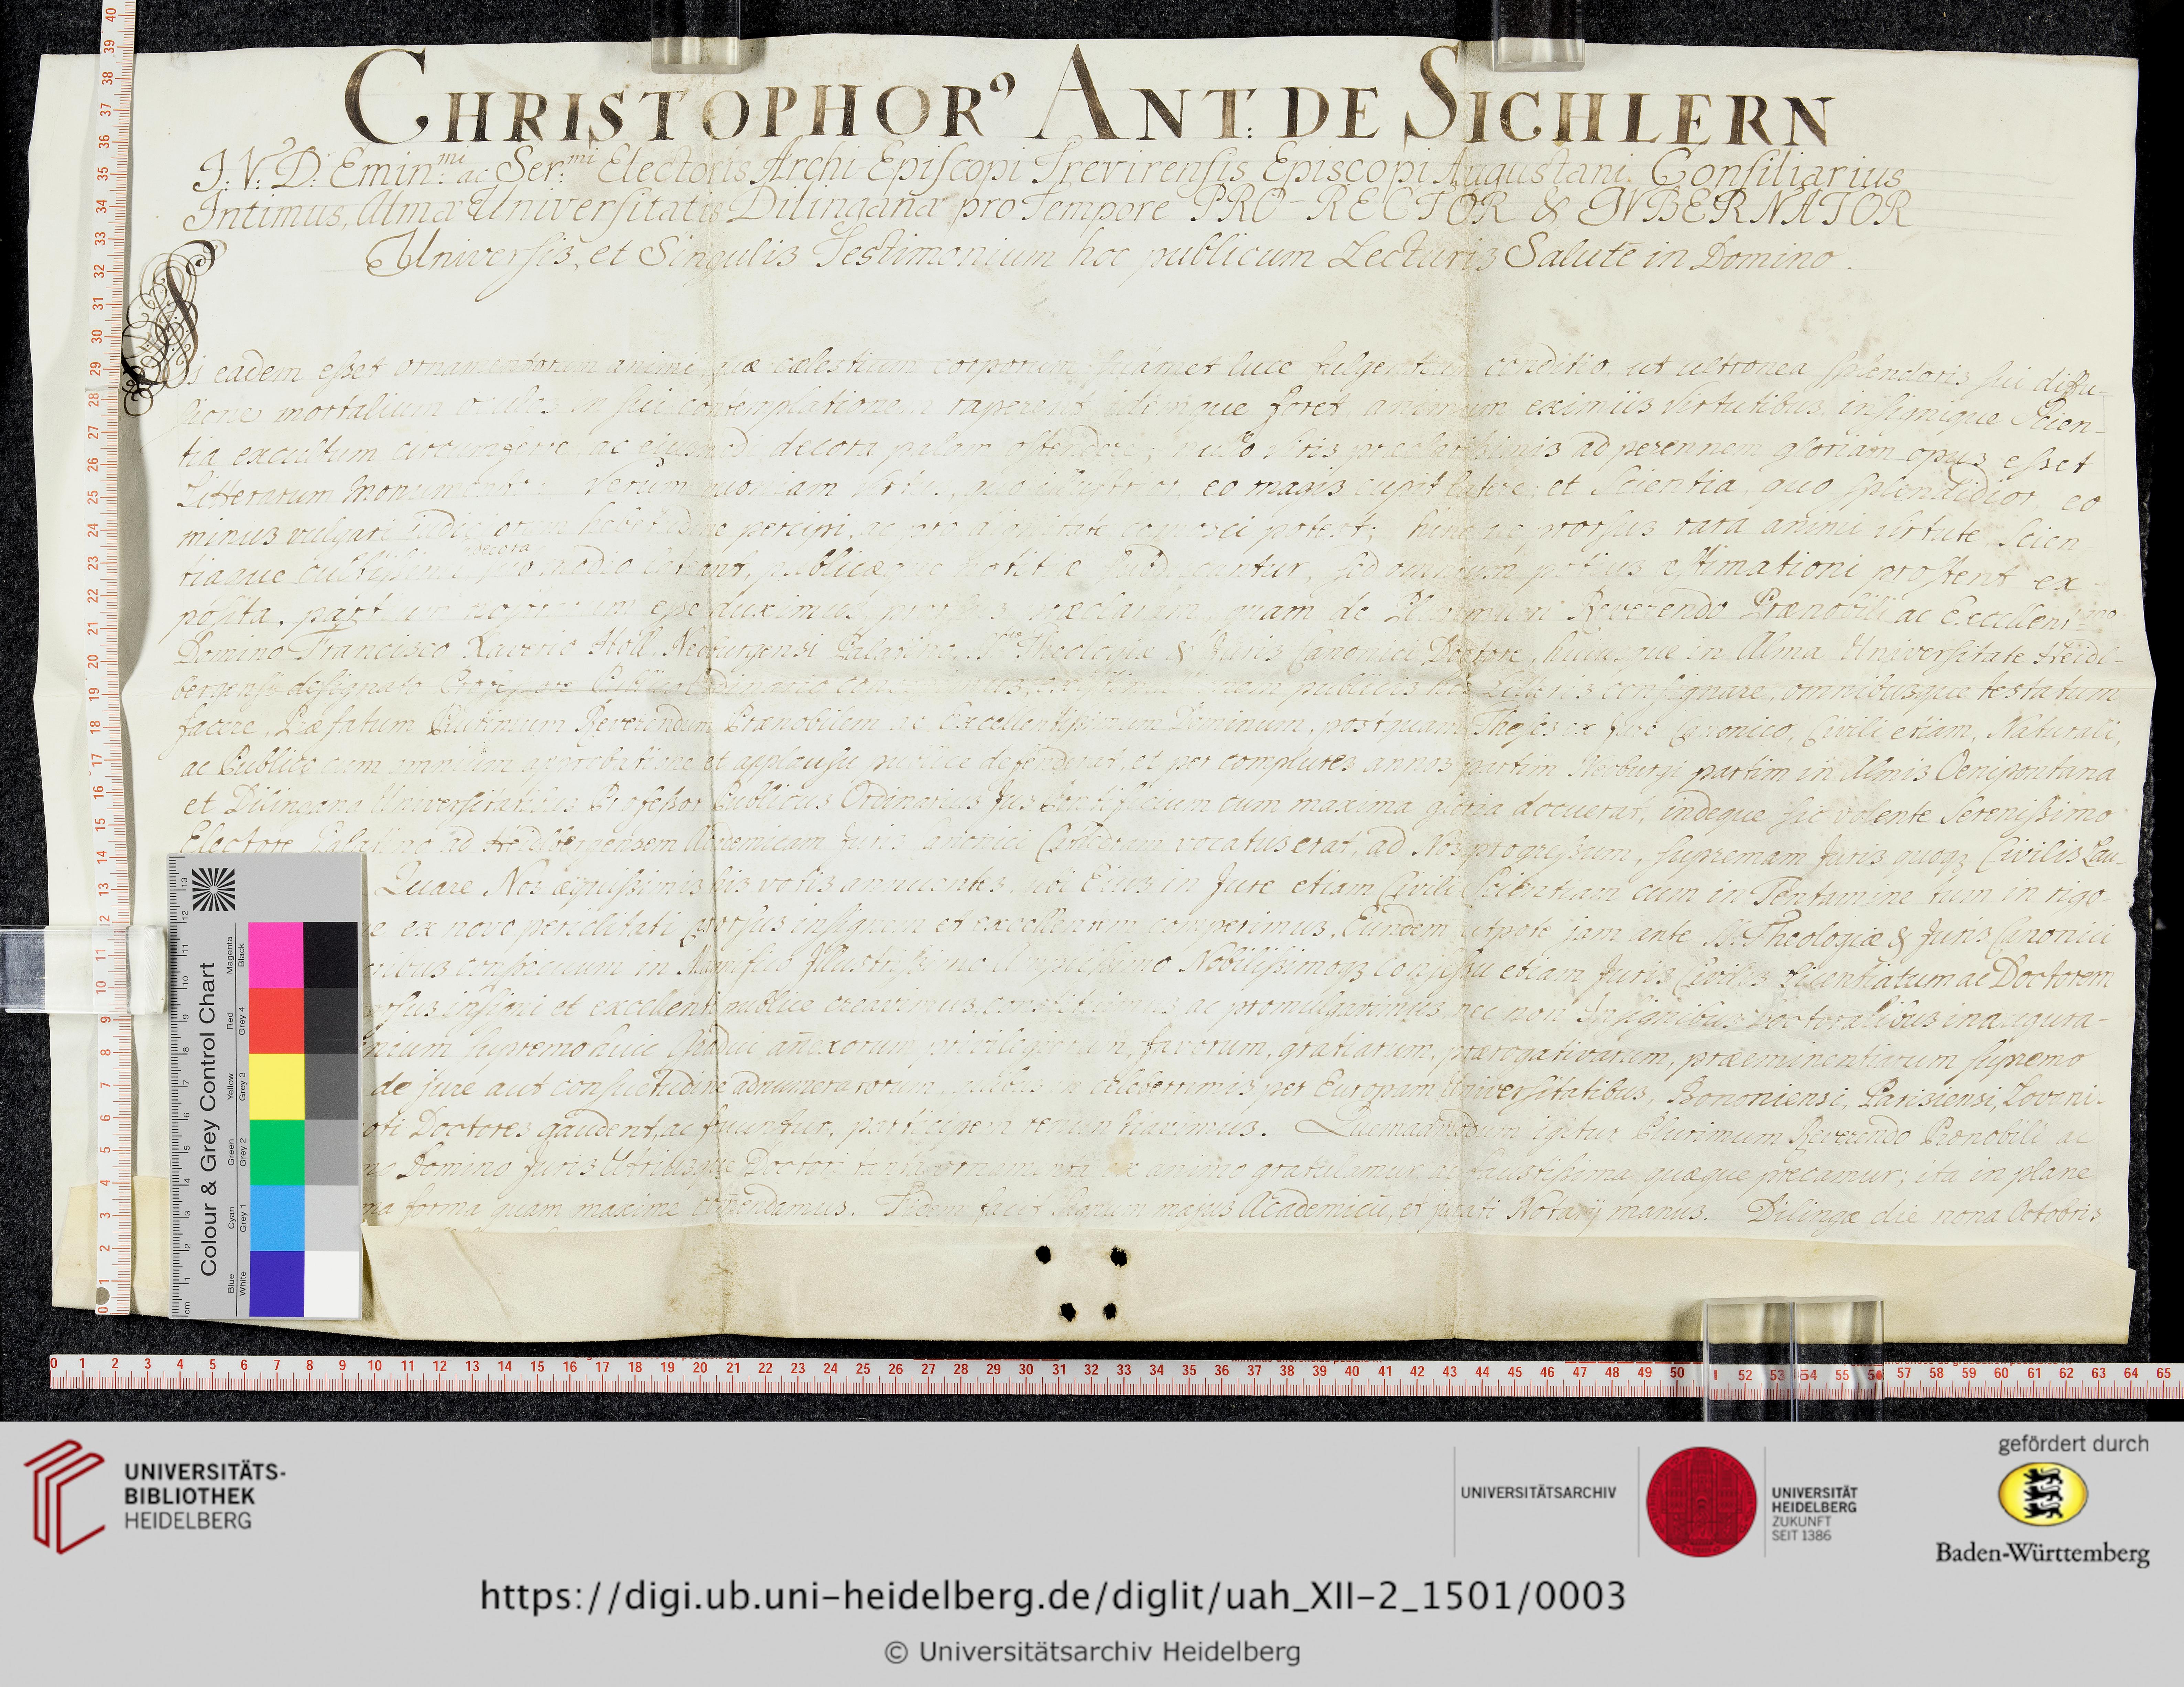 CHRISTOPHOR9 ANT: DE SICHLERN
J: V: D: Emin:mi ac Ser:mi Electoris Archi-Episcopi Trevirensis Episcopi Augustani Consiliarius
Intimus, Almæ Universitatis Dilinganæ pro tempore PRO-RECTOR & GVBERNATOR
Universis, et Singulis Testimonium hoc publicum Lecturis Salutē in Domino.
Si eadem eßet ornamentorum animi, quæ cælestium corporum suámet luce fulgentium conditio, ut ultronea splendoris sui diffu-
sione mortalium oculos in sui contemplationem raperent, idemque foret animum eximiis virtutibus, insignique Scien-
tia excultum circumferre, ac ejusmodi decora palam ostendere; nullo viris præclarißimis ad perennem gloriam opus eßet
Litterarum Monumento. Verum quoniam virtus, quo illustrior, eo magis cupit latere, et Scientia, quo splendidior, eo
minus vulgari percipi, ac pro dignitate cognosci potest; hinc ne prorsus rara animi virtute, Scien
tiaque decora modio lateant, publicæque notitiæ subducantur, sed omnium potius æstimationi prostent ex-
posita, partium nostrarum esse duximus, quam de Plurimum Reverendo Prænobili ac Excellent:mo
Domino Francisco Xaverio Höll Neoburgensi Palatino, SS. Theologiæ & Juris Canonici Doctore, hujusque in Alma Universitate Heidl-
bergensi designato Professore Publico Ordinario publicis his Litteris consignare, omnibusque testatum
facere, Præfatum Plurimum Reverendum Prænobilem ac Excellentißimum Dominum, postquam Theses ex Jure Canonico, Civili etiam, Naturali,
ac Publico cum omnium approbatione et applausu publice defenderat, et per complures annos partim Neoburgi partim in Almis Oenipontana
et Dilingana Universitatibus Professor Publicus Ordinarius Jus Pontificium cum maxima gloria docuerat, indeque sic volente Serenißimo
Electore Palatino ad Heidlbergensem Academicam Juris Canonici Cathedram vocatus erat, ad Nos progreßum, supremam Juris quoqz Civilis Lau-
Quare Nos æquißimis his votis annuentes, ubi Eius in Jure etiam Civili Scientiam cum in Tentamine tum in rigo-
ex novo periclitati prorsus insignem et excellentem comperimus, Eundem utpote jam ante SS. Theologiæ & Juris Canonici
conspicuum in Magnifico Illustrißimo Nobilißimoqz Conseßu etiam Juris Civilis Licentiatum ac Doctorem
insigni et excellenti publice creavimus, constituimus ac promulgavimus, nec non Insignibus Doctoralibus inaugura-
supremo huic Gradui anexorum privilegiorum, favorum, gratiarum, prærogativarum, præeminentiarum supremo
de jure aut consuetudine adnumeratorum, quibus in celeberrimis per Europam Universitatibus, Bononiensi, Parisiensi, Lovani-
Doctores gaudent, ac fruuntur, participem renuntiavimus. Quemadmodum igitur Plurimum Reverendo Prænobili ac
Domino Juris Utriusque Doctori ex animo gratulamur, ac faustißima quæque precamur; ita in plane
forma quam maxime cōmendamus. Fidem facit Signum majus Academicū, et jurati Notarij manus. Dilingæ die nona Octobris
Colour & Grey Control Chart
Blue Cyan Green Yellow Red Magenta
White Grey 1 Grey 2 Grey 3 Grey 4 Black
UNIVERSITÄTS-
BIBLIOTHEK
HEIDELBERG
UNIVERSITÄTSARCHIV
UNIVERSITÄT
HEIDELBERG
ZUKUNFT
SEIT 1386
gefördert durch
Baden-Württemberg
https://digi.ub.uni-heidelberg.de/diglit/uah_XII-2_1501/0003
© Universitätsarchiv Heidelberg